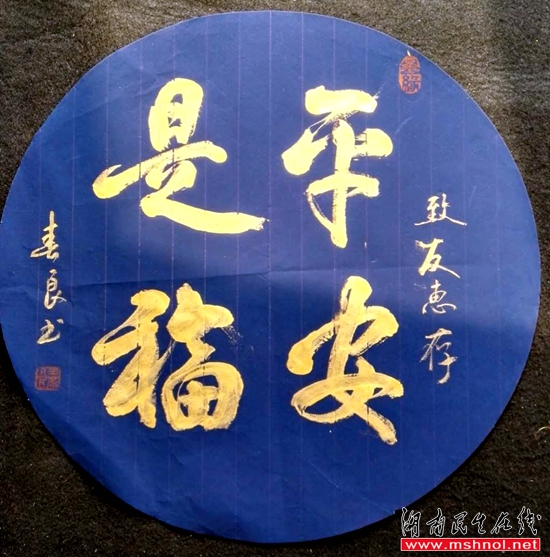 致友惠存
平安
是福
春良书
湖南民生在线
www.mshnol.net